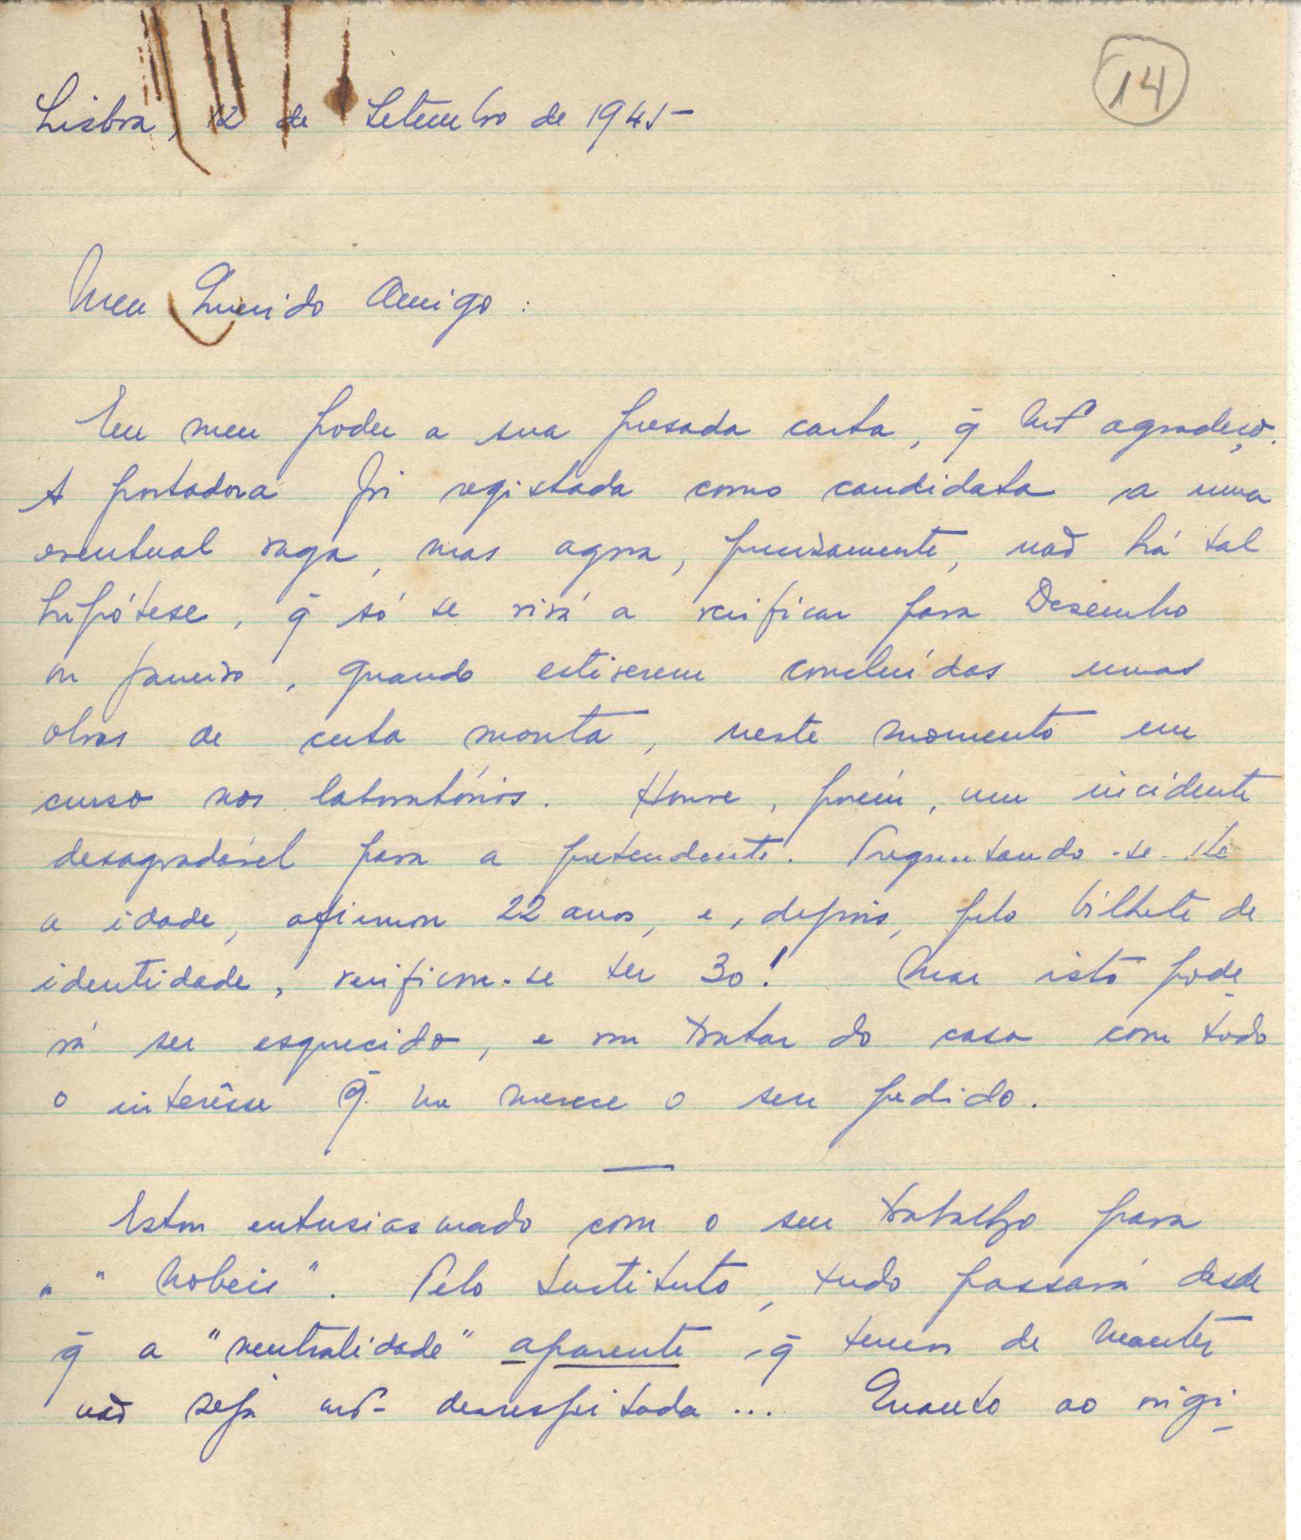 14
Lisboa, 12 de Setembro de 1945
Meu Querido Amigo:
Em meu poder a sua presada carta, q̄ mt.º agradeço.
A portadora foi registada como candidata a uma
eventual vaga, mas agora, precisamente, não há tal
hipótese, q̄ só se virá a verificar para Dezembro
ou Janeiro, quando estiverem concluídas umas
obras de certa monta, neste momento em
curso nos laboratórios. Houve, porém, um incidente
desagradável para a pretendente. Preguntando-se-lhe
a idade, afirmou 22 anos, e, depois, pelo bilhete de
identidade, verificou-se ter 30! Mas isto pode-
rá ser esquecido, e vou tratar do caso com todo
o interêsse q̄ me merece o seu pedido.
Estou entusiasmado com o seu trabalho para
" " Nobeis". Pelo Instituto, tudo passará desde
q̄ a "neutralidade" aparente q̄ temos de manter
não seja mt.º desrespeitada... Quanto ao origi-